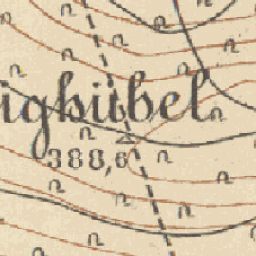 igkübel
388,6